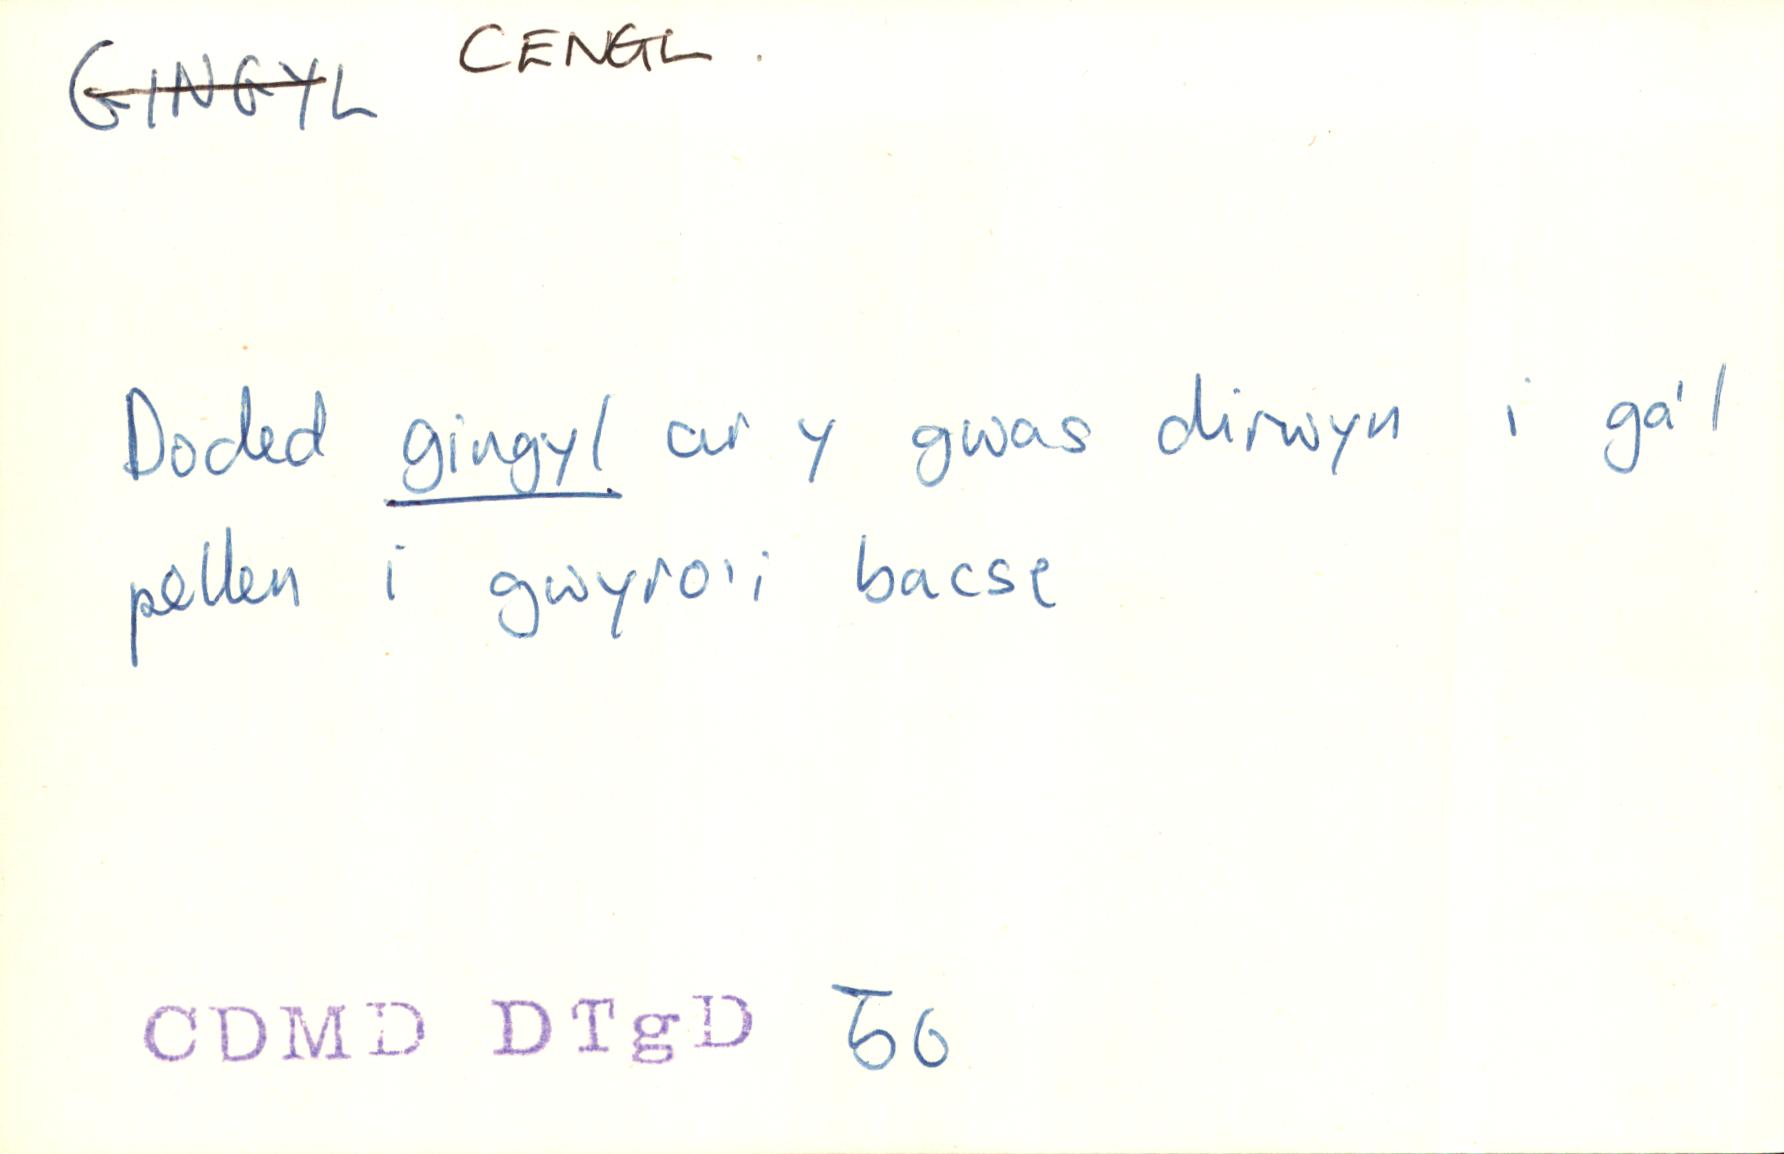 GINGYL CENGL.
Doded gingyl ar y gwas dirwyn i ga'l
pellen i gwyro'i bacse
CDMD DTgD 56